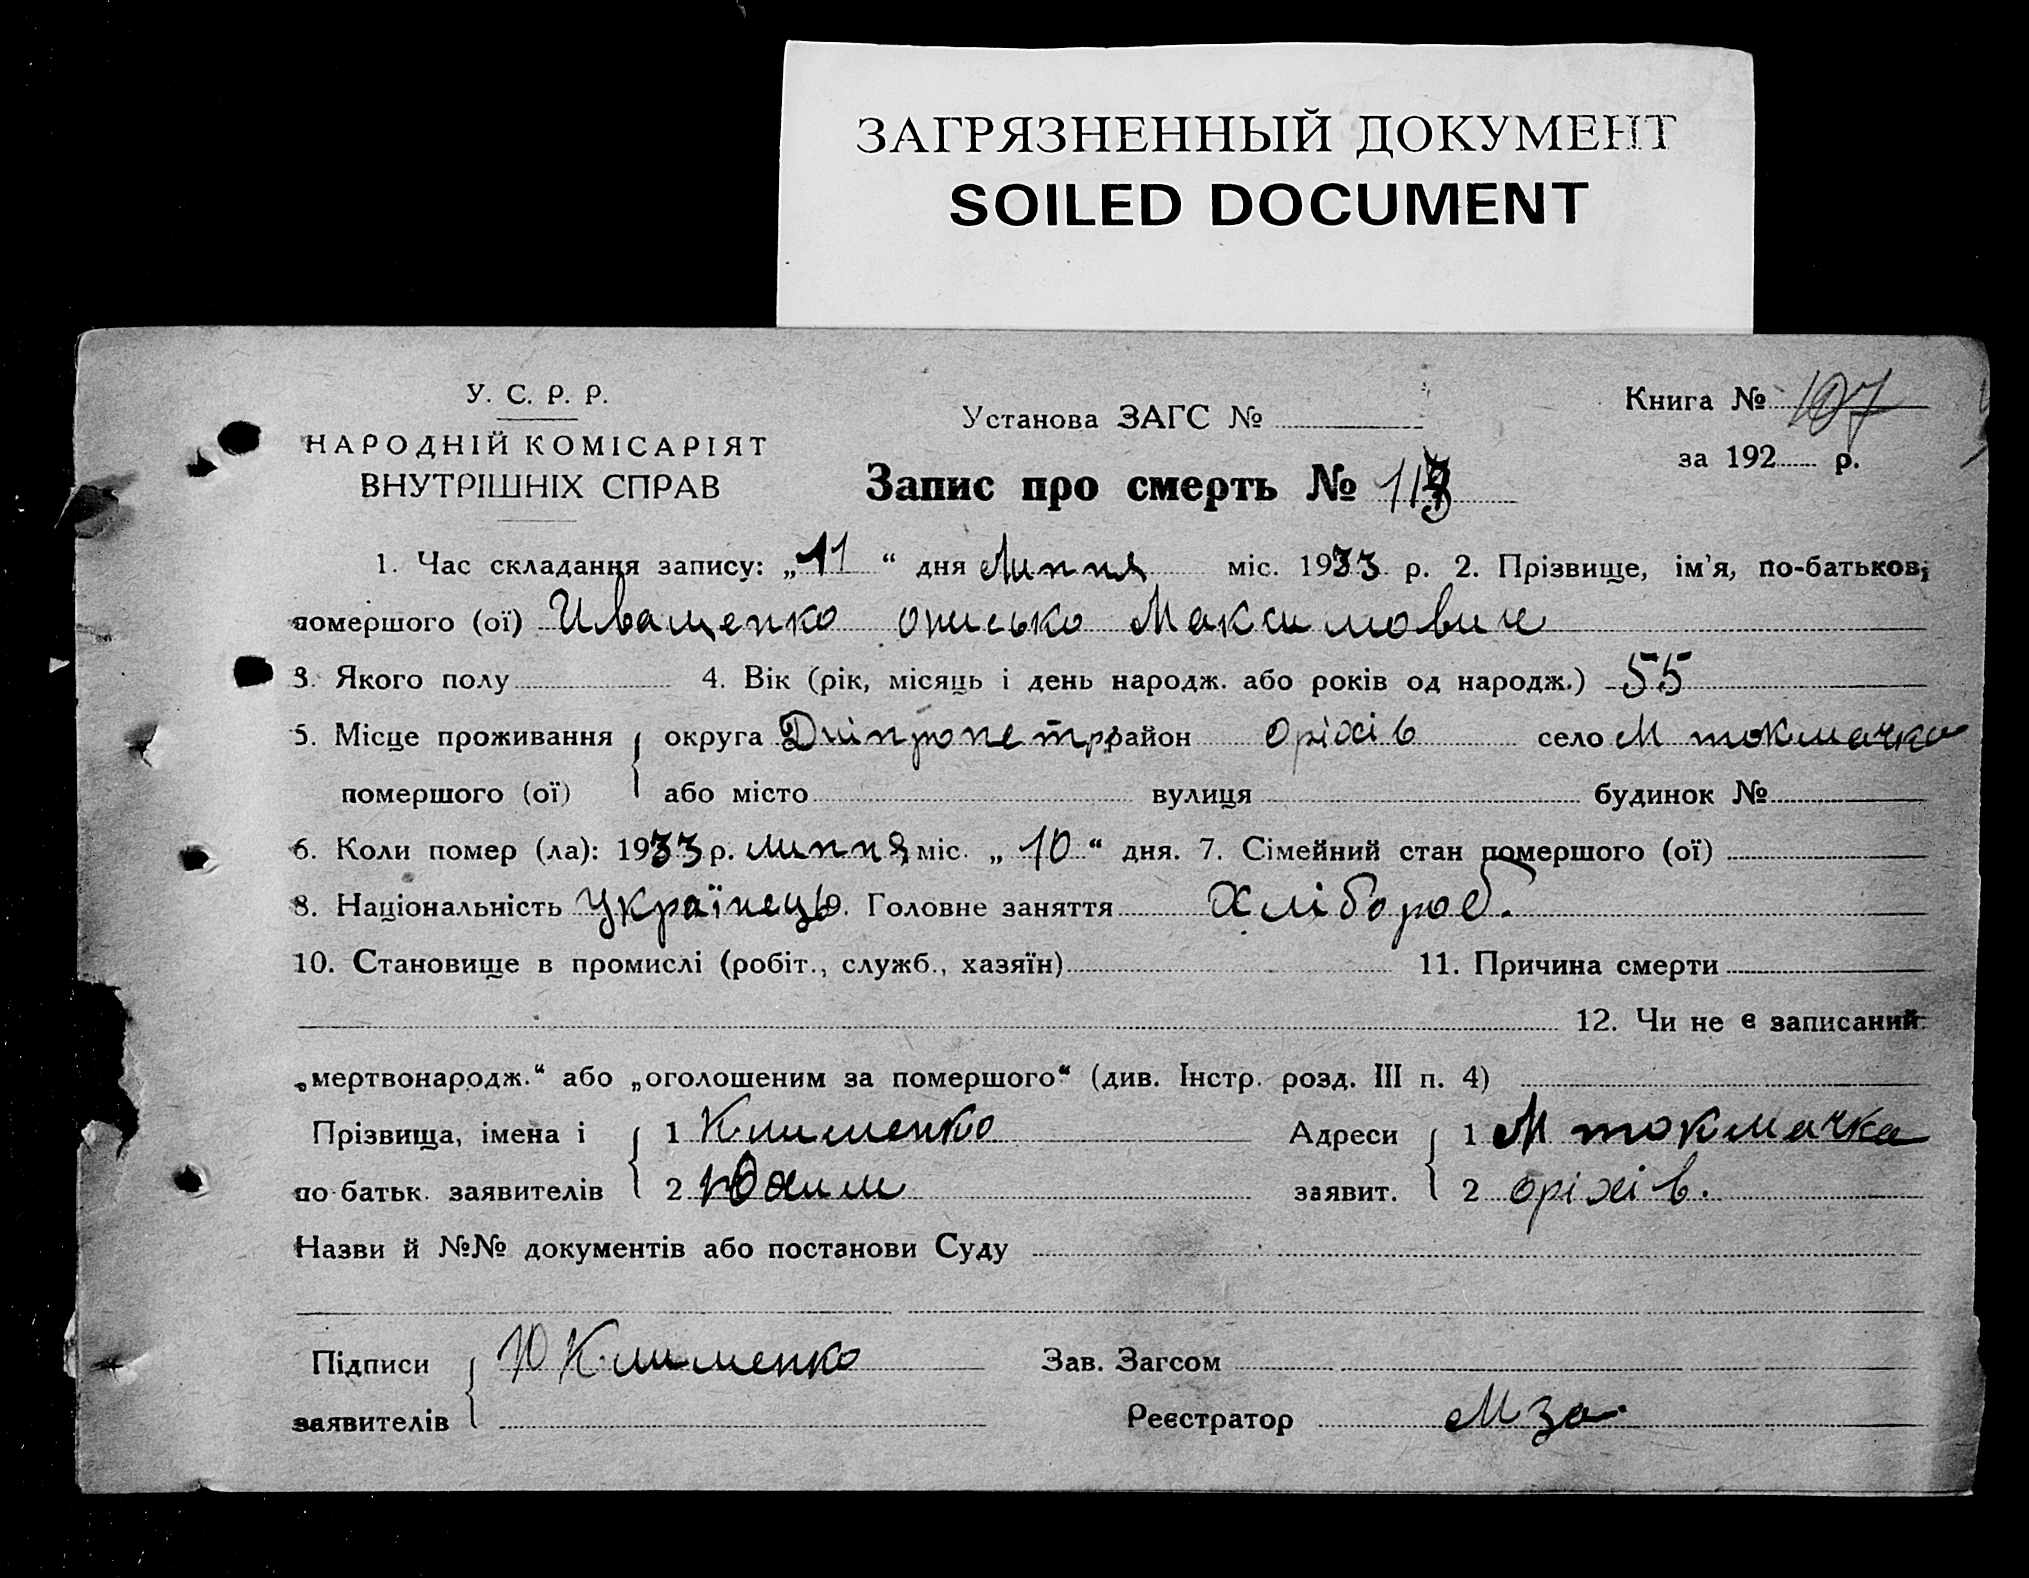 ЗАГРЯЗНЕННЫЙ ДОКУМЕНТ
SOILED DOCUMENT
У. С. Р. Р.
НАРОДНІЙ КОМІСАРІЯТ
ВНУТРІШНІХ СПРАВ
Установа ЗАГС №
Книга № 107
за 192 р.
Запис про смерть № 113
1. Час складання запису: „11“ дня Липня міс. 1933 р. 2. Прізвище, ім'я, по-батькові
помершого (ої) Иващенко онисько Максимович
3. Якого полу 4. Вік (рік, місяць і день народж. або років од народж.) 55
5. Місце проживання округа Дніпропетр район Оріхів село М токмачка
помершого (ої) або місто вулиця будинок №
6. Коли помер (ла): 1933 р. липня міс. „10“ дня. 7. Сімейний стан помершого (ої)
8. Національність Українець. Головне заняття Хлібороб.
10. Становище в промислі (робіт., служб., хазяїн) 11. Причина смерти
12. Чи не є записаний
„мертвонародж.“ або „оголошеним за помершого“ (див. Інстр. розд. III п. 4)
Прізвища, імена і 1 Клименко Адреси 1 М токмачка
по батьк. заявителів 2 Юхим заявит. 2 оріхів.
Назви й №№ документів або постанови Суду
Підписи Ю Клименко Зав. Загсом
заявителів Реєстратор